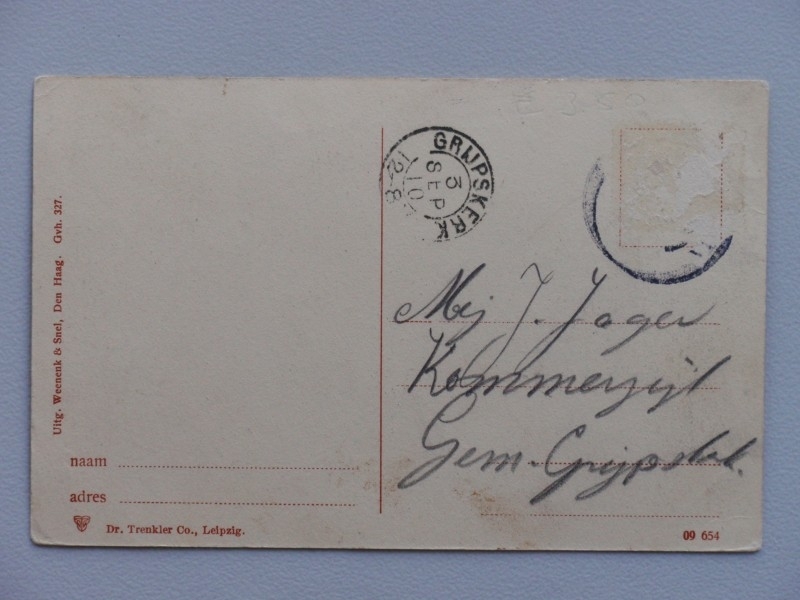 E 3 50
GRIJPSKERK
3
SEP
10
12-8
Uitg. Weenenk & Snel, Den Haag. Gvh. 327.
Mej J. Jager
Kommerzijl
Gem. Grijpskerk.
naam
adres
Dr. Trenkler Co., Leipzig.
09 654